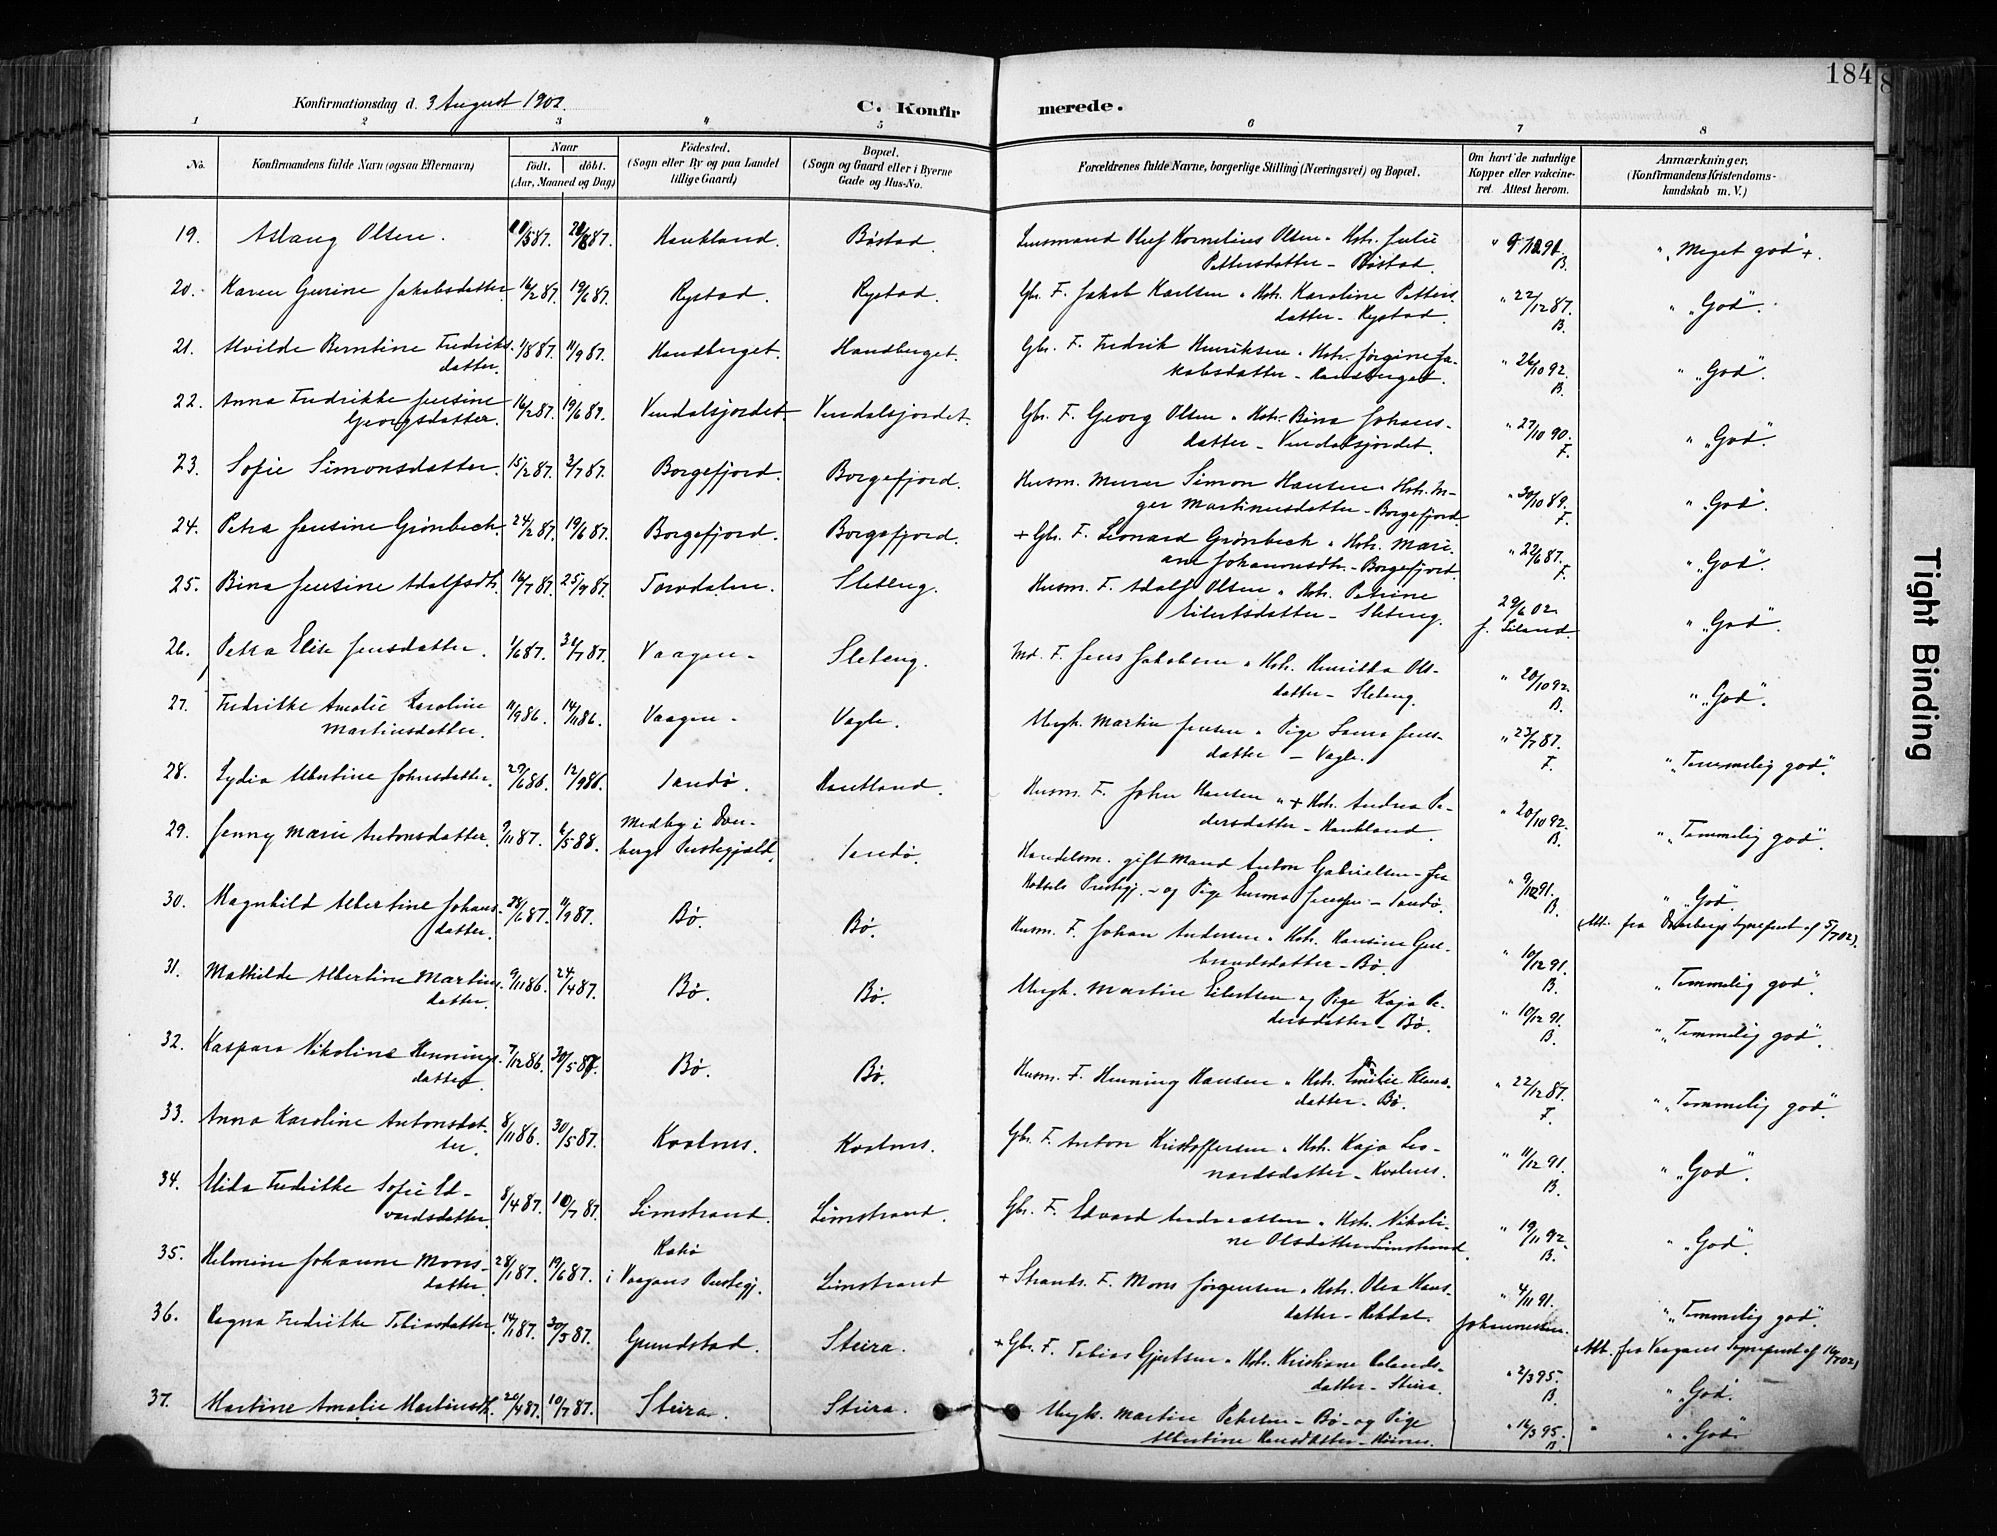 184
Konfirmationsdag d. 3 August 1902.
C. Konfirmerede.
1 2 3 4 5 6 7 8
No.
Konfirmandens fulde Navn (ogsaa Efternavn)
Naar
født. døbt.
(Aar, Maaned og Dag)
Fødested.
(Sogn eller By og paa Landet
tillige Gaard)
Bopæl.
(Sogn og Gaard eller i Byerne
Gade og Hus-No.
Forældrenes fulde Navne, borgerlige Stilling (Næringsvei) og Bopæl.
Om havt de naturlige
Kopper eller vakcine-
ret. Attest herom.
Anmærkninger,
(Konfirmandens Kristendoms-
kundskab m. V.)
19. Aslaug Olsen. Haukland. Bøstad. Lensmand Oluf Kornelius Olsen Hstr. Julie
Pettersdatter – Bøstad. B. "Meget god" +.
20. Karen Gurine Jakobsdatter 16/2 87. 19/6 87. Rystad. Rystad. Gbr. F. Jakob Karlsen Hstr. Karoline Petters
datter – Rystad. 22/12 87. B. "God".
21. Alvilde Berntine Fredriks- 1/8 87. 11/9 87. Handberget. Handberget. Gbr. F. Fredrik Henriksen Hstr. Jørgine Ja-
datter. kobsdatter – Handberget. 26/10 92. B. "God".
22. Anna Fredrikke Jensine 16/2 87. 19/6 87. Vendalsjordet Vendalsjordet. Gbr. F. Georg Olsen Hstr. Bina Johans-
Georgsdatter. datter – Vendalsjordet. 27/10 90. F. "God".
23. Sofie Simonsdatter. 15/2 87. 3/7 87. Borgefjord. Borgefjord. Husm. Murer Simon Hansen Hstr. In-
ger Martinusdatter – Borgefjord 30/10 89. F. "God".
24. Petra Jensine Grønbech. 24/2 87. 19/6 87. Borgefjord. Borgefjord. + Gbr. F. Leonard Grønbech Hstr. Mari-
ane Johannesdtr. – Borgefjord. 22/6 87. F. "God".
25. Bina Jensine Adolfsdtr. 16/7 87. 25/9 87. Torvdalen. Sleteng. Husm. F. Adolf Olsen Hstr. Petrine
Eilertsdatter – Sleteng. 29/6 02. "God".
26. Petra Elise Jensdatter. 1/6 87. 31/7 87. Vaagen – Sleteng. Ind. F. Jens Jakobsen Hstr. Henrikka Ols-
datter – Sleteng. 20/10 92. B. "God".
27. Fredrikke Amalie Karoline 11/9 86. 14/11 86. Vaagen – Vagle. Ungk. Martin Jensen Pige Laura Jens-
Martinsdatter. datter – Vagle. 23/7 87. F. "Temmelig god".
28. Lydia Albertine Johnsdatter. 29/6 86. 12/9 86. Sandø. Haukland. Husm. F. John Hansen + Hstr. Andrea Pe-
dersdatter – Haukland. 20/10 92. B. "Temmelig god".
29. Jenny Marie Antonsdatter. 9/11 87. 6/5 88. Medby i Dver-
bergs Prestegjæld. Sandø. Handelsm. gift Mand Anton Gabrielsen – fra
Prestegj. – og Pige Emma Jensen – Sandø. 9/12 91. B. "God".
30. Magnhild Albertine Johans- 28/6 87. 11/9 87. Bø. Bø. Husm. F. Johan Andersen Hstr. Hansine Gul-
datter. brandsdatter – Bø. 10/12 91. B. "Temmelig god".
31. Mathilde Albertine Martins- 9/11 86. 24/4 87. Bø. Bø. Ungk. Martin Eilertsen og Pige Kaja Pe-
datter. dersdatter – Bø. 10/12 91. B. "Temmelig god".
32. Kaspara Nikoline Hennings- 7/12 86. 30/5 87. Bø. Bø. Husm. F. Henning Hansen Hstr. Emilie
datter. datter – Bø. 22/12 87. F. "Temmelig god".
33. Anna Karoline Antonsdat- 8/11 86. 30/5 87. Kvalnes. Kvalnes. Gbr. F. Anton Kristoffersen Hstr. Kaja Leo-
ter. nardsdatter – Kvalnes. 11/12 91. B. "God".
34. Alida Fredrikke Sofie Ed- 8/4 87. 10/7 87. Limstrand. Limstrand. Gbr. F. Edvard Andreassen Hstr. Nikoli-
vardsdatter. ne Olsdatter Limstrand. 19/11 92. B. "God".
35. Helmine Johanne Mons- 28/1 87. 19/6 87. i Vaagans Prestegj. Limstrand + Strands. F. Mons Jørgensen Hstr. Olea Hans-
datter. datter – 4/11 91. Johannessen. "Temmelig god".
36. Ragna Fredrikke Tobiasdatter. 14/1 87. 30/5 87. Grundstad. Steira. + Gbr. F. Tobias Gjertsen Hstr. Kristiane
datter – Steira. 2/3 95. B. "God".
37. Martine Amalie Martinsdtr. 20/4 87. 10/7 87. Steira. Steira. Ungk. Martin Petersen – Bø – og Pige
Albertine Hansdatter – 16/3 95. B. "God"
Tight Binding